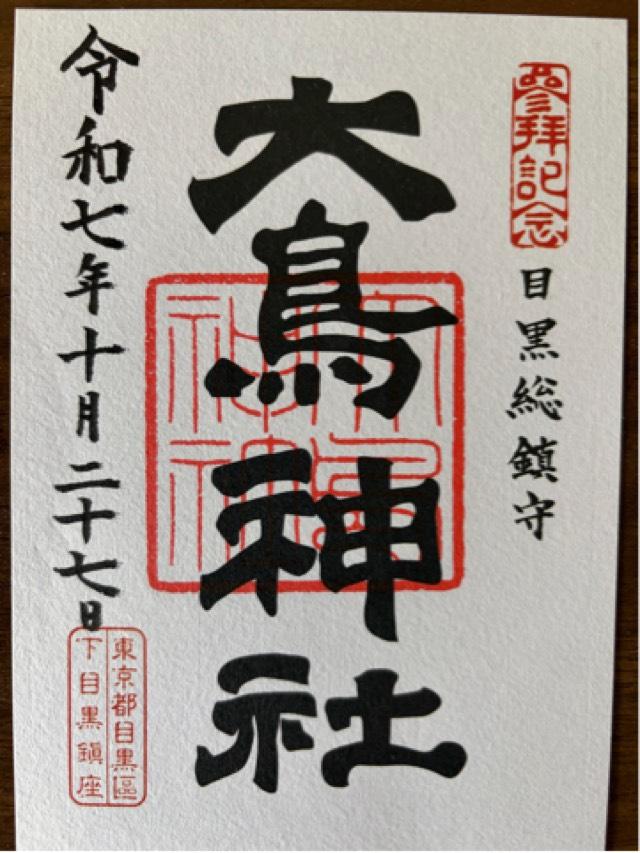 參拝記念
目黒総鎮守
大鳥神社
令和七年十月二十七日
東京都目黒區
下目黒鎭座